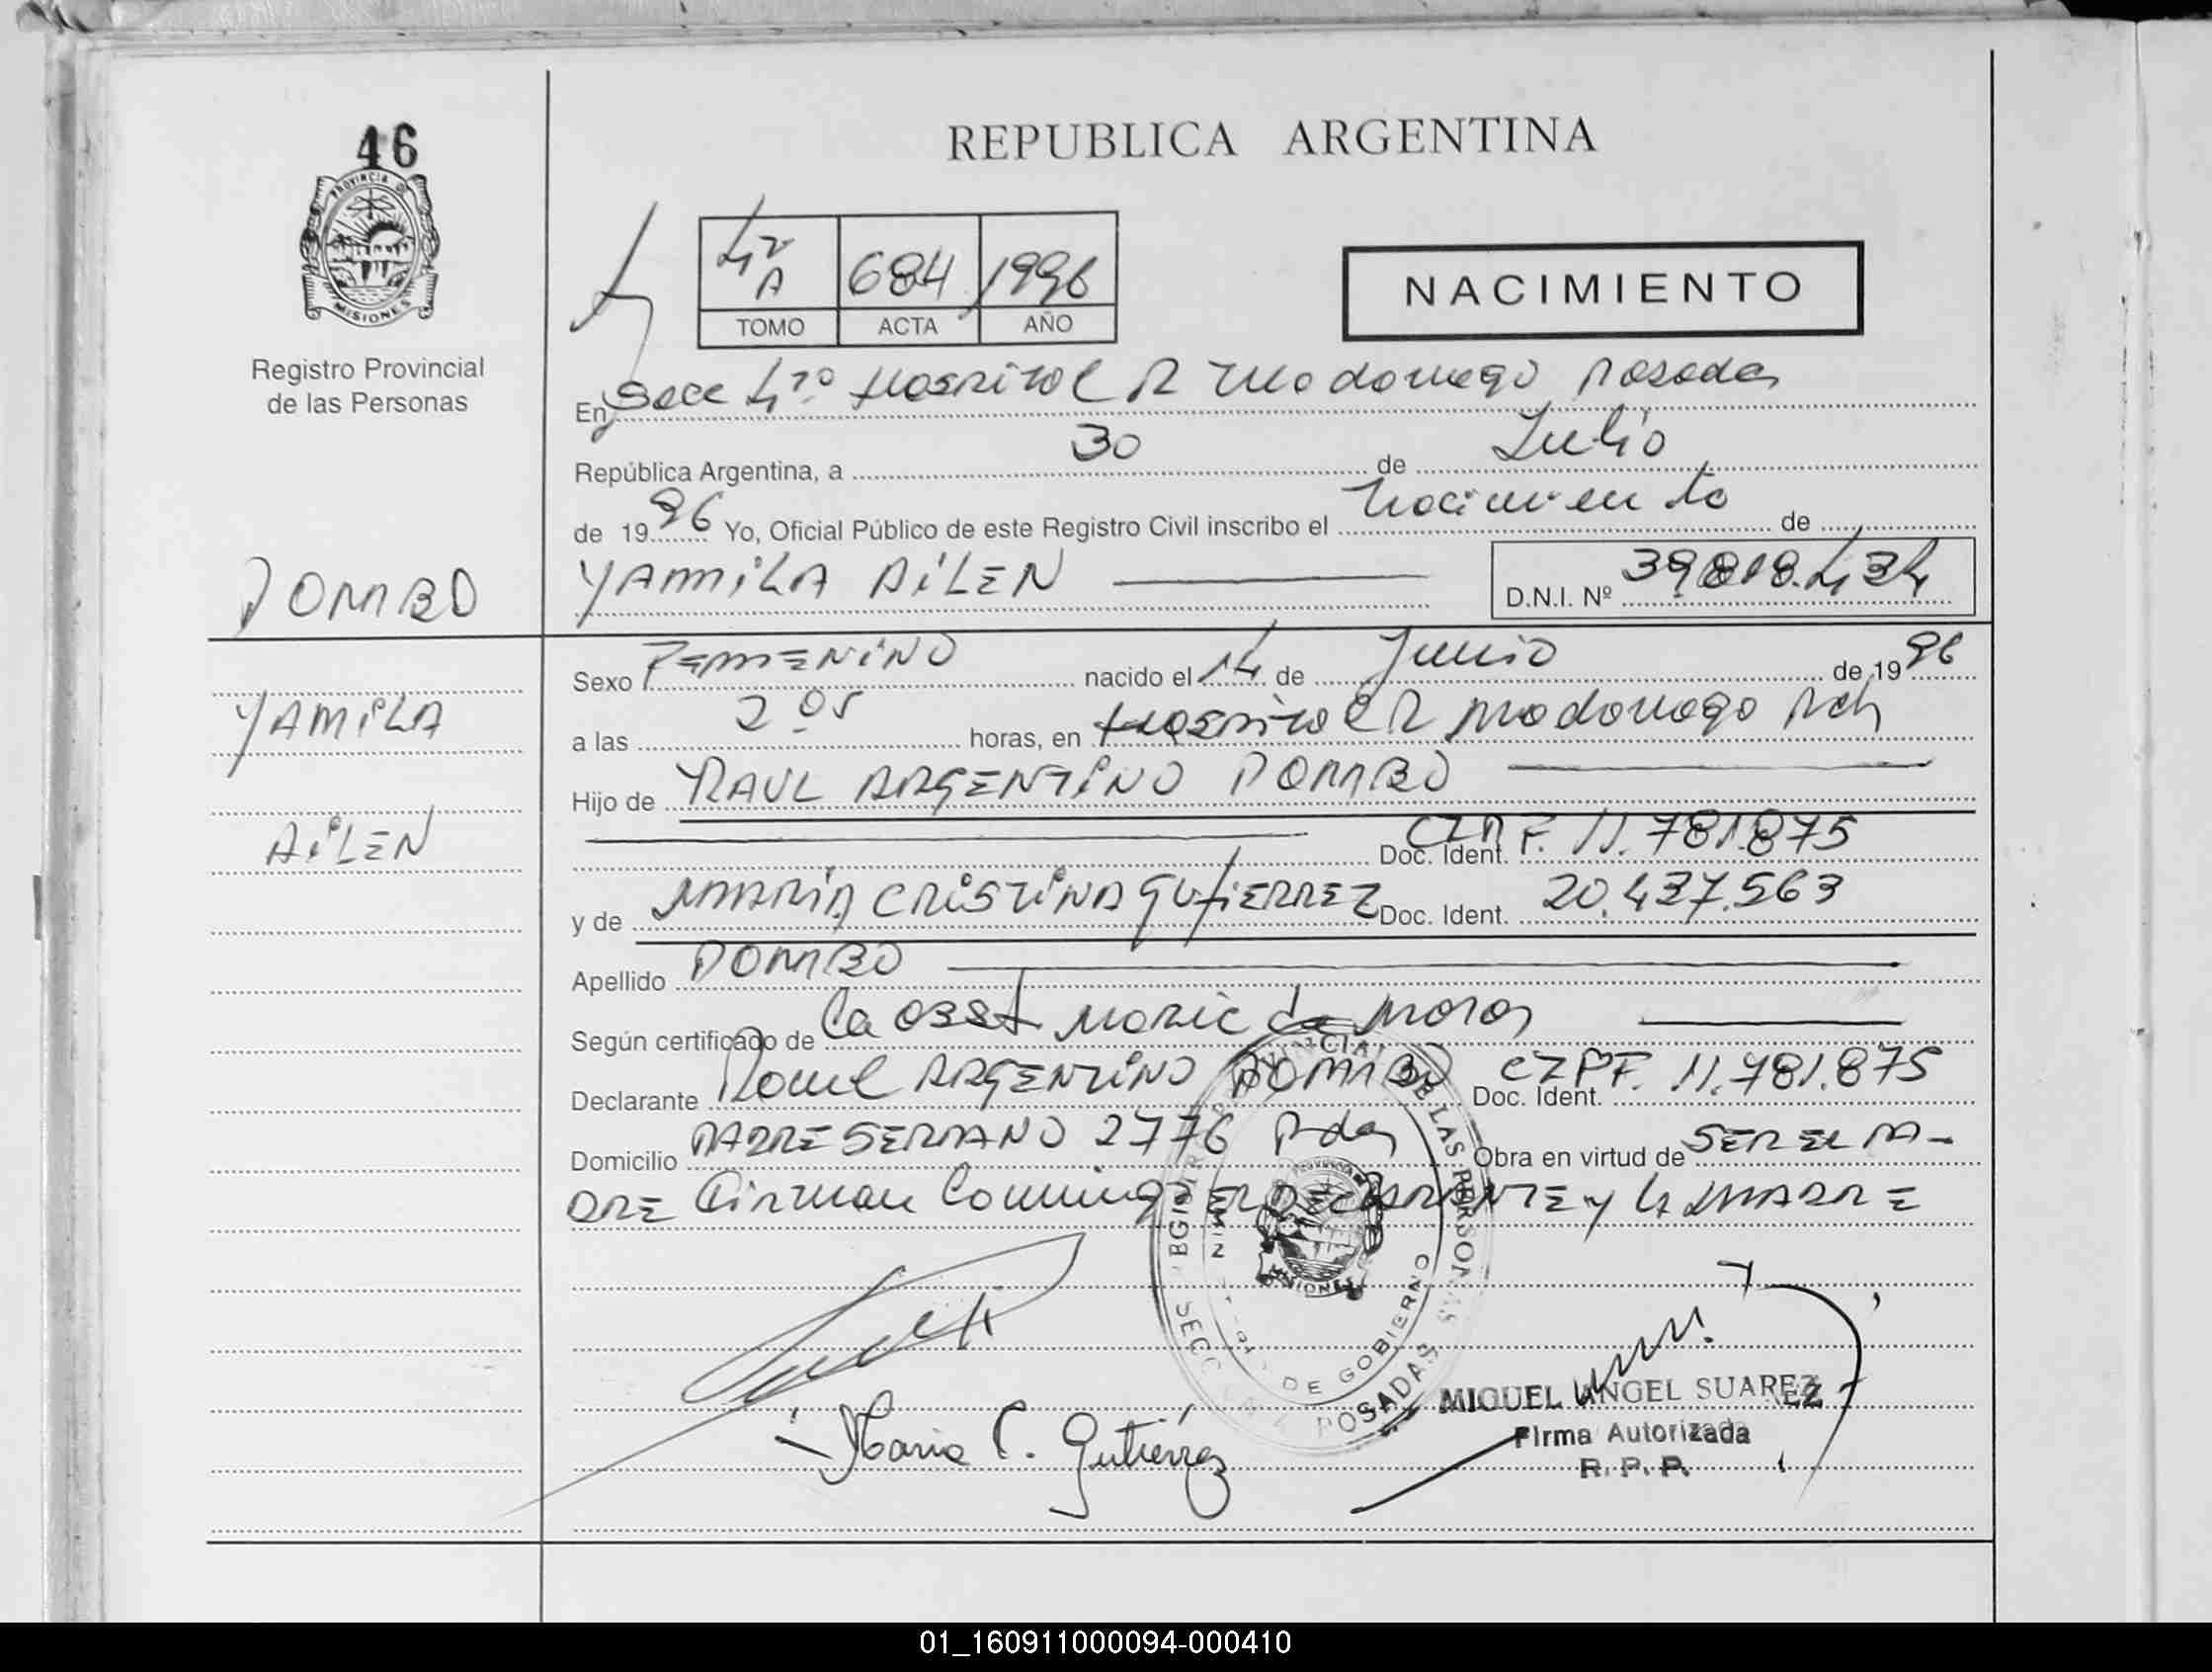 46
PROVINCIA DE
MISIONES
Registro Provincial
de las Personas
REPUBLICA ARGENTINA
684 1996
TOMO ACTA AÑO
NACIMIENTO
En Secc 4ta Hospital R Madariaga Posadas
República Argentina, a 30 de Julio
de 1996 Yo, Oficial Público de este Registro Civil inscribo el nacimiento de
YAMILA AILEN D.N.I. Nº 39.818.434
POMBO
YAMILA
AILEN
Sexo FEMENINO nacido el 14 de Junio de 1996
a las 2 05 horas, en Hospital R Madariaga Pdas
Hijo de RAUL ARGENTINO POMBO
Doc. Ident. F. 11.781.875
y de MARIA CRISTINA GUTIERREZ Doc. Ident. 20.437.563
Apellido POMBO
Según certificado de La Obst
Declarante Raul ARGENTINO POMBO Doc. Ident. 11.781.875
Domicilio PADRE SERRANO 2776 Pdas Obra en virtud de SER EL PA-
DRE Firman Conmigo EL DECLARANTE y LA MADRE
REGISTRO PROVINCIAL DE LAS PERSONAS
DE GOBIERNO
MISIONES
POSADAS
Maria C. Gutierrez
MIGUEL ANGEL SUAREZ
Firma Autorizada
R. P. P.
01_160911000094-000410